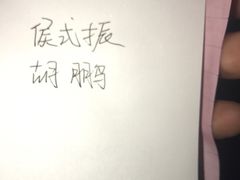 侯式振
胡鹏